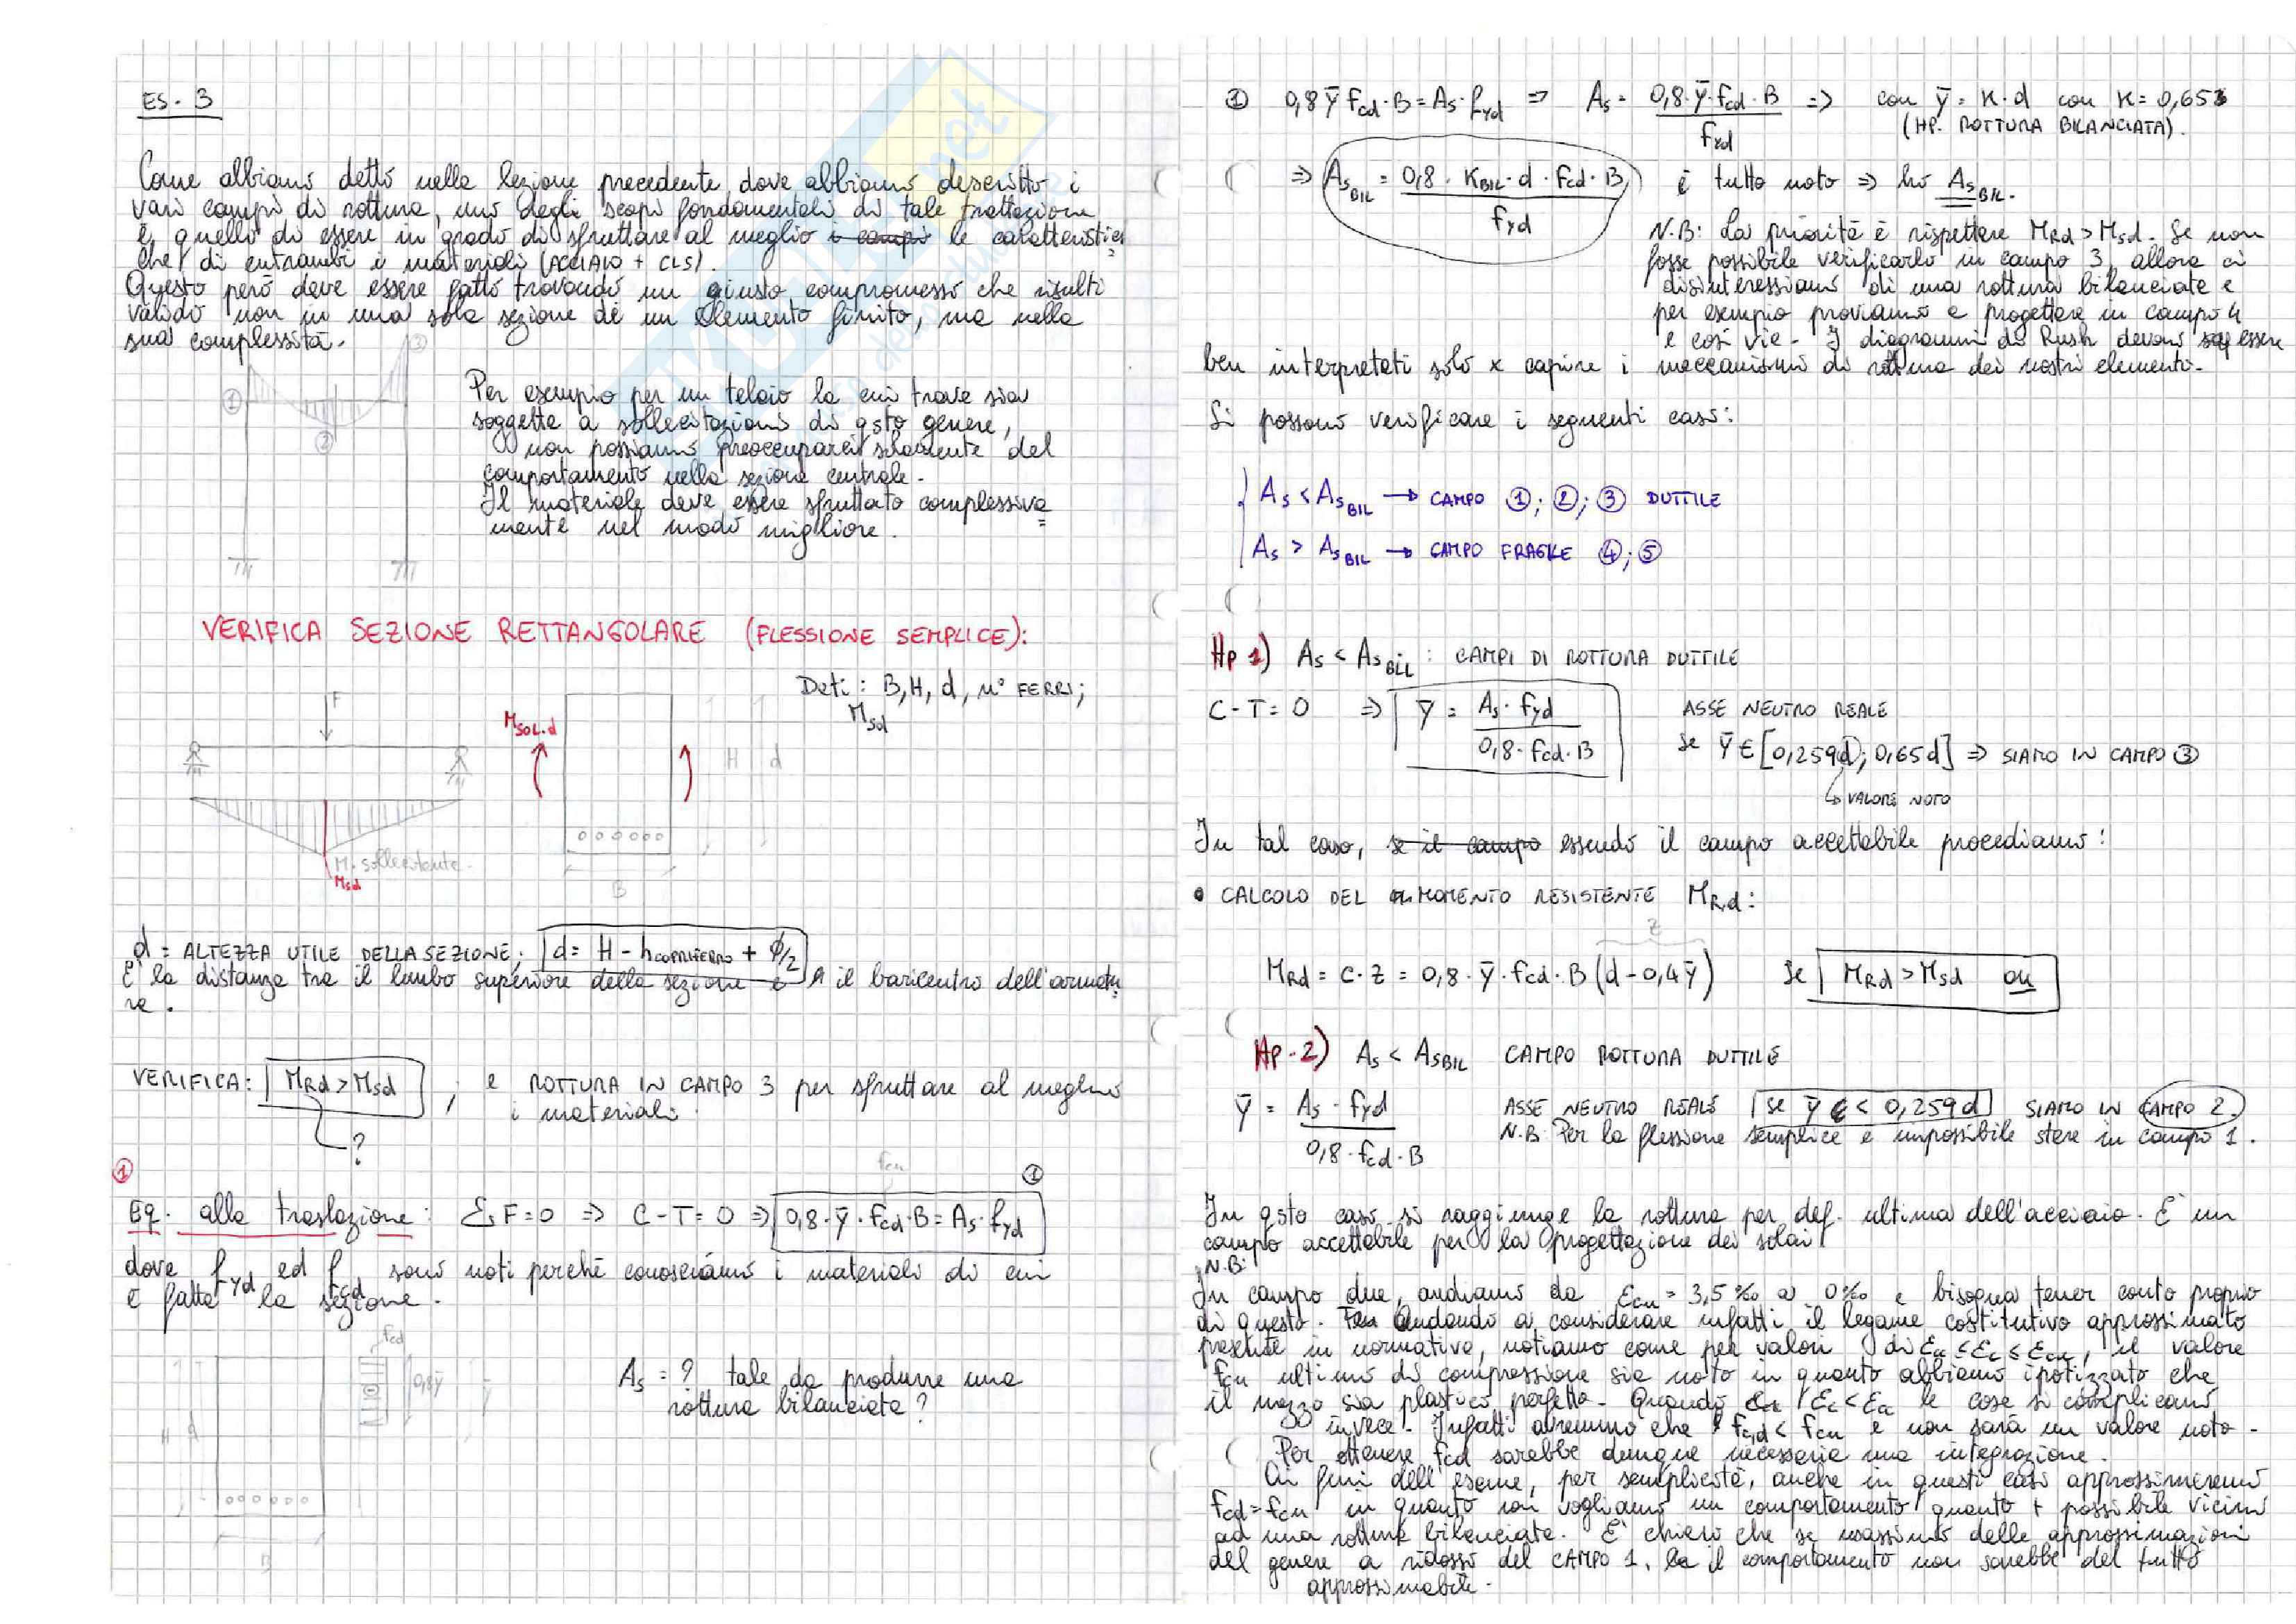 ES. 3
Come abbiamo detto nella lezione precedente, dove abbiamo descritto i
vari campi di rottura, uno degli scopi fondamentali di tale trattazione
è quello di essere in grado di sfruttare al meglio i campi le caratteristi
che di entrambi i materiali (ACCIAIO + CLS).
Questo però deve essere fatto trovando un giusto compromesso che risulti
valido non in una sola sezione di un elemento finito, ma nella
sua complessità.
① ② ③
Per esempio per un telaio la cui trave sia
soggetta a sollecitazioni di qsto genere,
non possiamo preoccuparci solamente del
comportamento nella sezione centrale.
Il materiale deve essere sfruttato complessiva
mente nel modo migliore.
VERIFICA SEZIONE RETTANGOLARE (FLESSIONE SEMPLICE):
Dati: B, H, d, n° FERRI;
Msd
F
MSOL.d
H d
M. sollecitante.
Msd
B
d = ALTEZZA UTILE DELLA SEZIONE; d = H - hCOPRIFERRO + ϕ/2
È la distanza tra il lembo superiore della sezione e il baricentro dell'armatu
ra.
VERIFICA: MRd > Msd ; e ROTTURA IN CAMPO 3 per sfruttare al meglio
i materiali.
?
①
fcu ①
Eq. alla traslazione: ΣF=0 ⇒ C-T=0 ⇒ 0,8·ȳ·fcd·B = As·fyd
dove fyd ed fcd sono noti perché conosciamo i materiali di cui
è fatta la sezione.
fcd
0,8ȳ ȳ
H d
B
As = ? tale da produrre una
rottura bilanciata?
① 0,8 ȳ fcd·B = As·fyd ⇒ As = 0,8·ȳ·fcd·B / fyd ⇒ con ȳ = K·d con K = 0,65
(HP. ROTTURA BILANCIATA).
⇒ AsBIL = 0,8·KBIL·d·fcd·B / fyd è tutto noto ⇒ ho AsBIL.
N.B: La priorità è rispettare MRd > Msd. Se non
fosse possibile verificarlo in campo 3, allora ci
disinteressiamo di una rottura bilanciata e
per esempio proviamo a progettare in campo 4
e così via. I diagrammi di Rush devono essere
ben interpretati solo x capire i meccanismi di rottura dei nostri elementi.
Si possono verificare i seguenti casi:
As < AsBIL → CAMPO ①; ②; ③ DUTTILE
As > AsBIL → CAMPO FRAGILE ④; ⑤
Hp 1) As < AsBIL : CAMPI DI ROTTURA DUTTILE
C-T=0 ⇒ ȳ = As·fyd / 0,8·fcd·B ASSE NEUTRO REALE
Se ȳ ∈ [0,259d; 0,65d] ⇒ SIAMO IN CAMPO ③
↳ VALORE NOTO
In tal caso, se il campo essendo il campo accettabile procediamo:
• CALCOLO DEL MOMENTO RESISTENTE MRd:
z
MRd = C·z = 0,8·ȳ·fcd·B (d-0,4ȳ) Se MRd > Msd ok
Hp. 2) As < AsBIL CAMPO ROTTURA DUTTILE
ȳ = As·fyd / 0,8·fcd·B ASSE NEUTRO REALE se ȳ < 0,259d SIAMO IN CAMPO 2.
N.B. Per la flessione semplice è impossibile stare in campo 1.
In qsto caso si raggiunge la rottura per def. ultima dell'acciaio. È un
campo accettabile per la progettazione dei solai.
N.B:
In campo due, andiamo da εcu = 3,5‰ a 0‰ e bisogna tener conto proprio
di questo. Andando a considerare infatti il legame costitutivo approssimato
presente in normativa, notiamo come per valori di ε ≤ εc ≤ εcu, il valore
fcu ultimo di compressione sia noto in quanto abbiamo ipotizzato che
il mezzo sia plastico perfetto. Quando εc < ε le cose si complicano
invece. Infatti avremmo che fcd < fcu e non sarà un valore noto.
Per ottenere fcd sarebbe dunque necessaria una integrazione.
Ai fini dell'esame, per semplicità, anche in questi casi approssimeremo
fcd = fcu in quanto noi vogliamo un comportamento quanto + possibile vicino
ad una rottura bilanciata. È chiaro che se usassimo delle approssimazioni
del genere a ridosso del CAMPO 1, il comportamento non sarebbe del tutto
approssimabile.